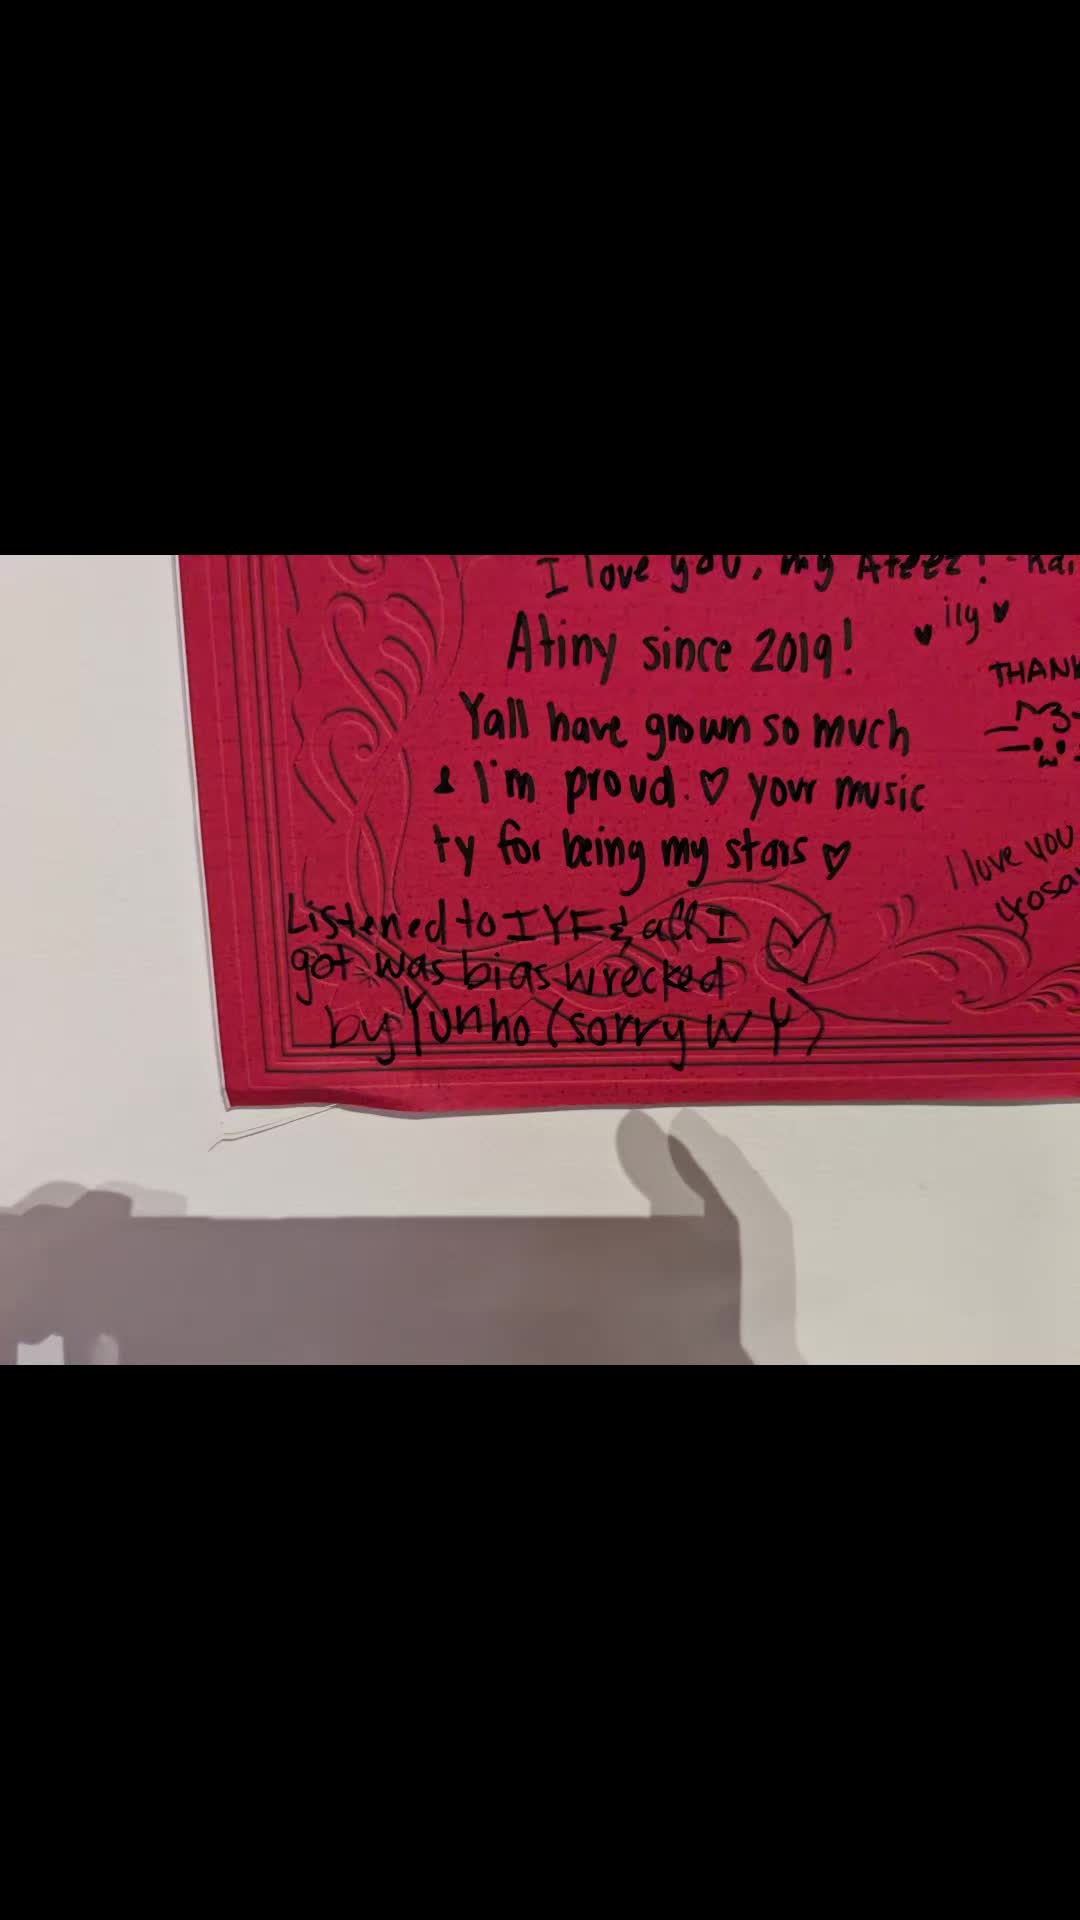 I love you, my Ateez! -Kai
♥ ily ♥
Atiny since 2019!
THANK
Yall have grown so much
& I'm proud. ♡ your music
ty for being my stars ♡
I love you
Listened to IYF & all I
got was bias wrecked
by Yunho (sorry WY)